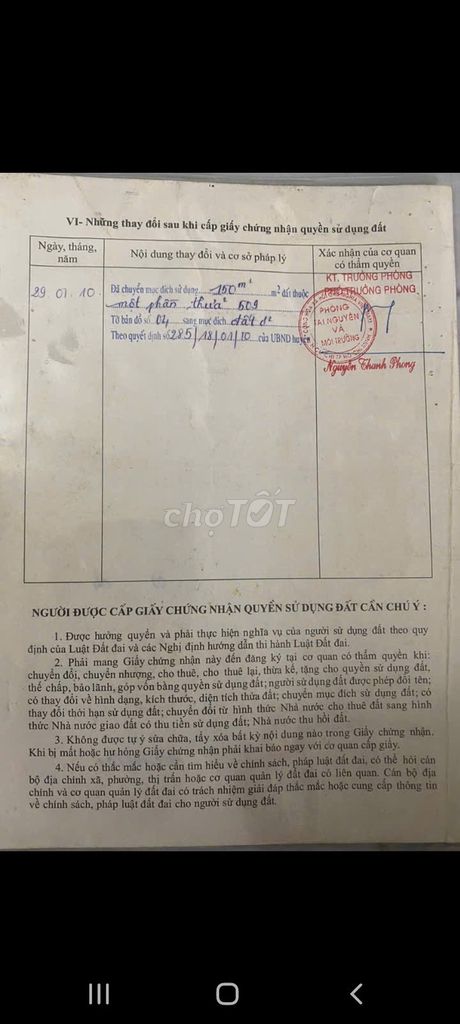 VI- Những thay đổi sau khi cấp giấy chứng nhận quyền sử dụng đất
Ngày, tháng, năm
Nội dung thay đổi và cơ sở pháp lý
Xác nhận của cơ quan có thẩm quyền
29.01.10.
Đã chuyển mục đích sử dụng 150m² m² đất thuộc
một phần thửa 509
Tờ bản đồ số 04 sang mục đích đất ở
Theo quyết định số 285/18/01/10 của UBND huyện
KT. TRƯỞNG PHÒNG
PHÓ TRƯỞNG PHÒNG
PHÒNG
TÀI NGUYÊN
VÀ
MÔI TRƯỜNG
Nguyễn Thanh Phong
chợTỐT
NGƯỜI ĐƯỢC CẤP GIẤY CHỨNG NHẬN QUYỀN SỬ DỤNG ĐẤT CẦN CHÚ Ý :
1. Được hưởng quyền và phải thực hiện nghĩa vụ của người sử dụng đất theo quy
định của Luật Đất đai và các Nghị định hướng dẫn thi hành Luật Đất đai.
2. Phải mang Giấy chứng nhận này đến đăng ký tại cơ quan có thẩm quyền khi:
chuyển đổi, chuyển nhượng, cho thuê, cho thuê lại, thừa kế, tặng cho quyền sử dụng đất,
thế chấp, bảo lãnh, góp vốn bằng quyền sử dụng đất; người sử dụng đất được phép đổi tên;
có thay đổi về hình dạng, kích thước, diện tích thửa đất; chuyển mục đích sử dụng đất; có
thay đổi thời hạn sử dụng đất; chuyển đổi từ hình thức Nhà nước cho thuê đất sang hình
thức Nhà nước giao đất có thu tiền sử dụng đất; Nhà nước thu hồi đất.
3. Không được tự ý sửa chữa, tẩy xóa bất kỳ nội dung nào trong Giấy chứng nhận.
Khi bị mất hoặc hư hỏng Giấy chứng nhận phải khai báo ngay với cơ quan cấp giấy.
4. Nếu có thắc mắc hoặc cần tìm hiểu về chính sách, pháp luật đất đai, có thể hỏi cán
bộ địa chính xã, phường, thị trấn hoặc cơ quan quản lý đất đai có liên quan. Cán bộ địa
chính và cơ quan quản lý đất đai có trách nhiệm giải đáp thắc mắc hoặc cung cấp thông tin
về chính sách, pháp luật đất đai cho người sử dụng đất.